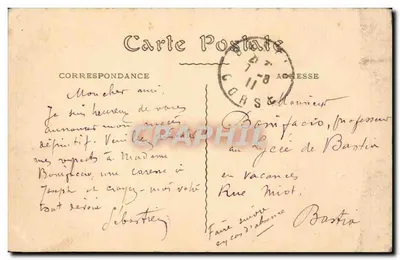 Carte Postale
CORRESPONDANCE
ADRESSE
CORSE
Mon cher ami,
Je suis heureux de vous
annoncer mon succès
définitif.
mes respects à Madame
Bonifacio, une caresse à
Joseph et croyez-moi votre
tout dévoué
Sébastien
Monsieur
Bonifacio, professeur
au lycée de Bastia
en vacances
Rue Miot.
Bastia
Faire suivre
en cas d'absence
CPHPHIL